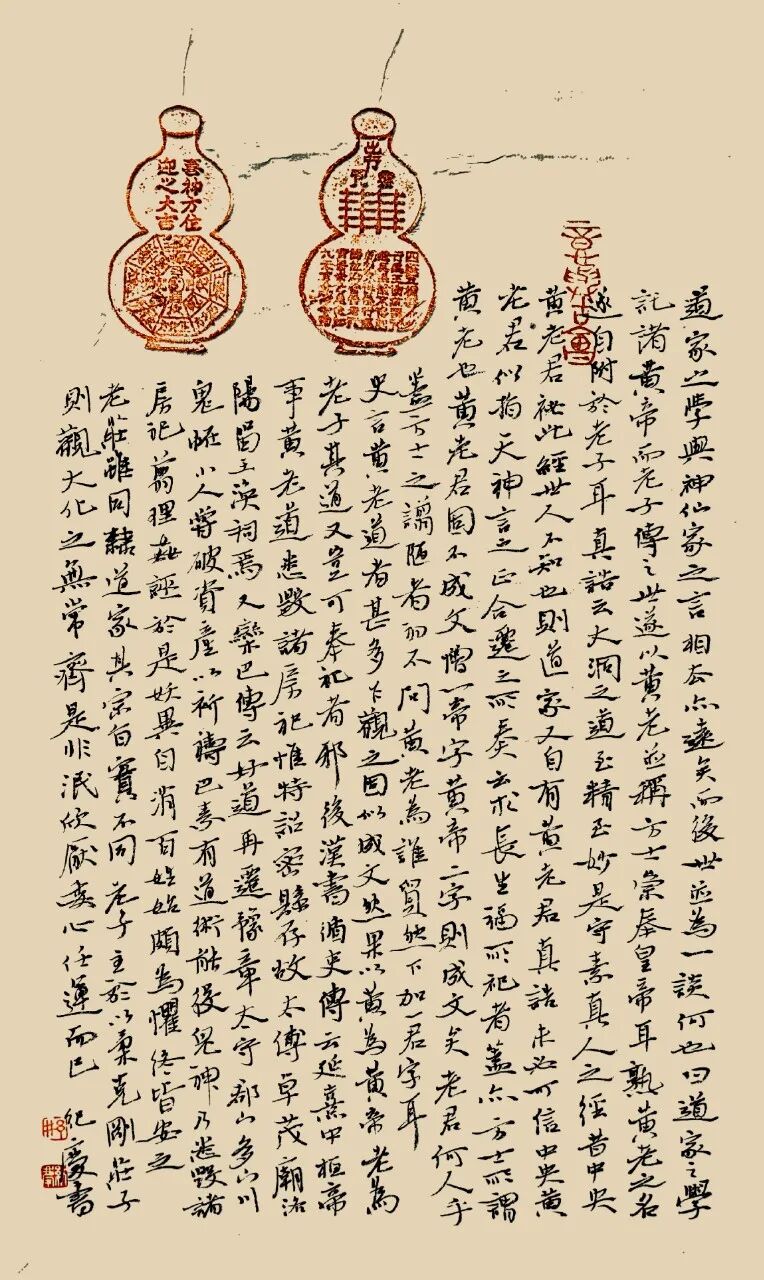 道家之學與神仙家之言相去亦遠矣而後世並為一談何也曰道家之學
託諸黃帝而老子傳之世遂以黃老並稱方士崇奉皇帝耳熟黃老之名
遂自附於老子耳真誥云大洞之道至精至妙是守素真人之經昔中央
黃老君祕此經世人不知也則道家又自有黃老君真誥未必可信中央黃
老君似指天神言之正合遷之所奏云求長生福所祀者蓋亦方士所謂
黃老也黃老君固不成文增一帝字黃帝二字則成文矣老君何人乎
蓋方士之譾陋者初不問黃老為誰貿然下加一君字耳
史言黃老道者甚多下觀之固似成文然果以黃為黃帝老為
老子其道又豈可奉祀者邪後漢書循吏傳云延熹中桓帝
事黃老道悉毀諸房祀惟特詔密縣存故太傅卓茂廟洛
陽留王渙祠焉又欒巴傳云好道再遷豫章太守郡山多山川
鬼怪小人嘗破資產以祈禱巴素有道術能役鬼神乃悉毀諸
房祀翦理姦誣於是妖異自消百姓始頗為懼終皆安之
老莊雖同隸道家其宗旨實不同老子主於以柔克剛莊子
則觀大化之無常齊是非泯欣厭委心任運而已 紀慶書
喜神方位
迎之大吉